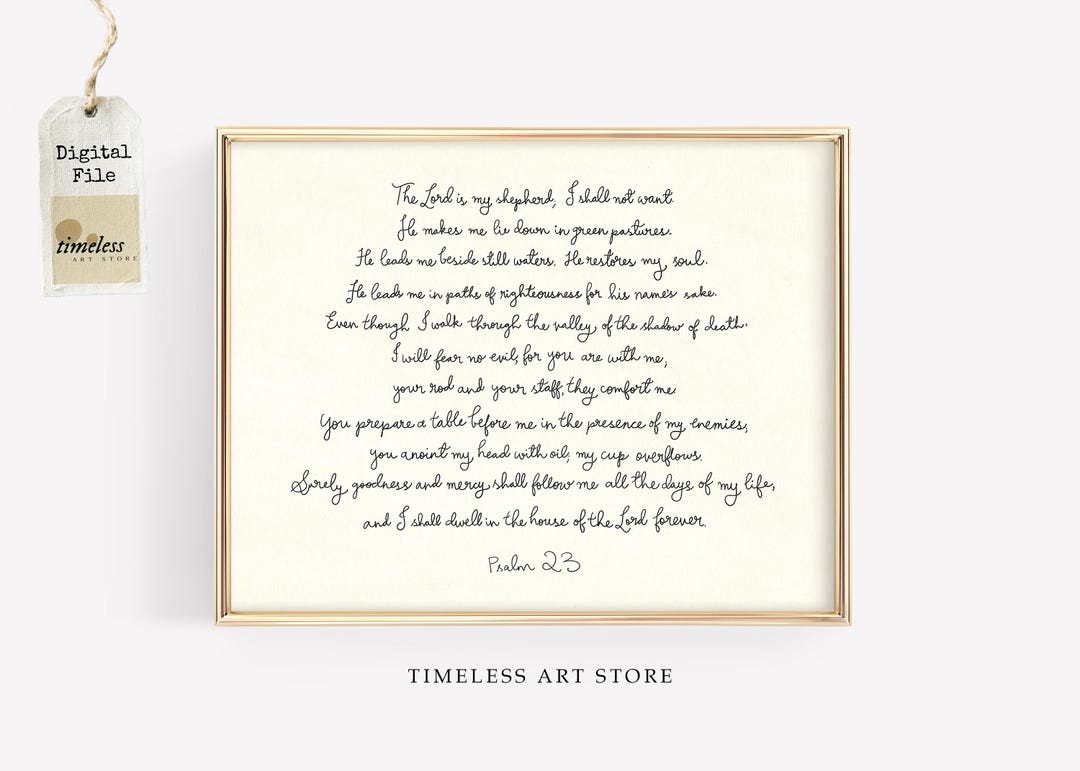 Digital
File
timeless
ART STORE
The Lord is my shepherd, I shall not want.
He makes me lie down in green pastures.
He leads me beside still waters. He restores my soul.
He leads me in paths of righteousness for his name's sake.
Even though I walk through the valley of the shadow of death.
I will fear no evil, for you are with me,
your rod and your staff, they comfort me.
You prepare a table before me in the presence of my enemies,
you anoint my head with oil; my cup overflows.
Surely goodness and mercy shall follow me all the days of my life,
and I shall dwell in the house of the Lord forever.
Psalm 23
TIMELESS ART STORE